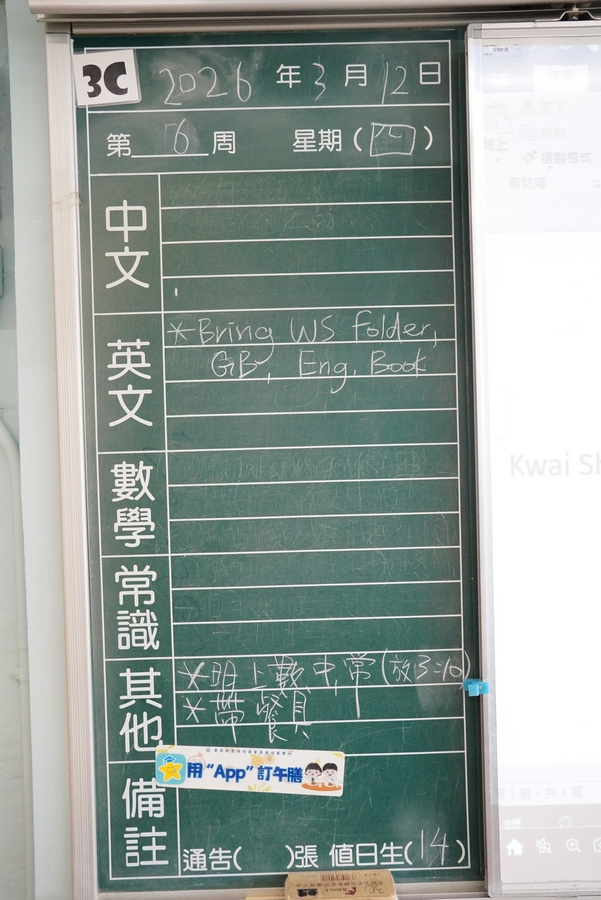 3C
2026 年 3 月 12 日
第 6 周 星期 (四)
中文
英文
*Bring WS Folder,
GB, Eng. Book
數學
常識
其他
*明上數中,常(放3:10)
*帶餐具
備註
用 “App” 訂午膳
通告( )張 值日生(14)
剪下
貼上
複製格式
剪貼簿
Kwai Sh
共 1 頁